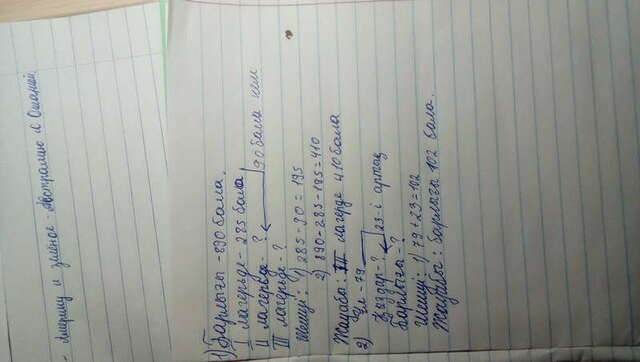 - Америку и зеленое - Австралию и Океанию.
1) Барлығы - 890 бала.
I лагерьде - 285 бала
II лагерьде - ? 90 бала кем
III лагерьде - ?
Шешуі: 1) 285 - 90 = 195
2) 890 - 285 - 195 = 410
Жауабы: III лагерде 410 бала
2) Ұл - 79
Қыздар - ? 23-і артық
Барлығы - ?
Шешуі: 1) 79 + 23 = 102
Жауабы: барлығы 102 бала.